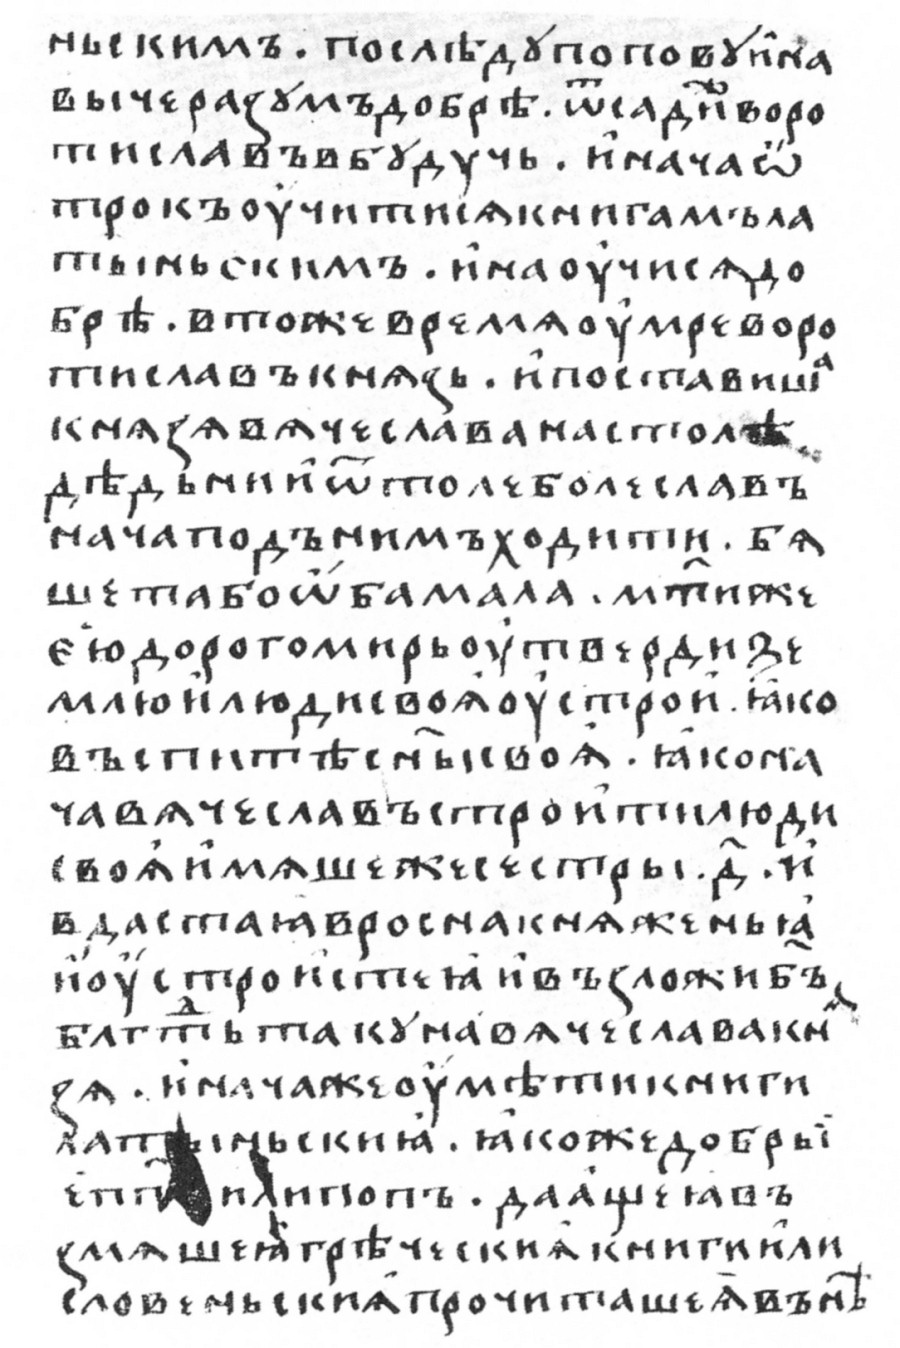 ньскимъ · послѣду попову и҆ на
вычє разумъ добрѣ · ѿсади҃ воро
тиславъ в буду чь · и҆ нача ѡ҆
трокъ оу҆читисѧ книгамъ ла
тыньскимъ · и҆ наоу҆чисѧ до
брѣ · в тоже времѧ оу҆мре воро
тиславъ кнѧзь · и҆ поставишⷶ
кнѧзѧ вѧчеслава на столѣ
дѣдьни и҆ ѿтоле болеславъ
нача подъ нимъ ходити · бѧ
ше та бо ѡ҆ба мала · мт҃и же
єю дорогомирь оу҆тверди зе
млю и҆ люди своꙗ҆ оу҆строи҆ · ꙗ҆ко
въспитѣ сн҃ы своꙗ҆ · ꙗ҆ко на
ча вѧчеславъ строи҆ти люди
своꙗ҆ и҆мѧше же сестры · д҃ · и҆
вдаста ꙗ҆ в росна кнѧженьꙗ҆
и҆ оу҆строи҆стеꙗ҆ и҆ възложи б҃ъ
блгⷣть таку на вѧчеслава кнѧ
зѧ · и҆ нача же оу҆мѣти книги
латыньскиꙗ҆ · ꙗ҆коже добрыї
єпп҃ъ или попъ · да а҆ще ꙗ҆ въ
змѧшеть грѣческиꙗ҆ книги и҆ли
словеньскиꙗ҆ прочиташе ꙗ҆ въ нѣ